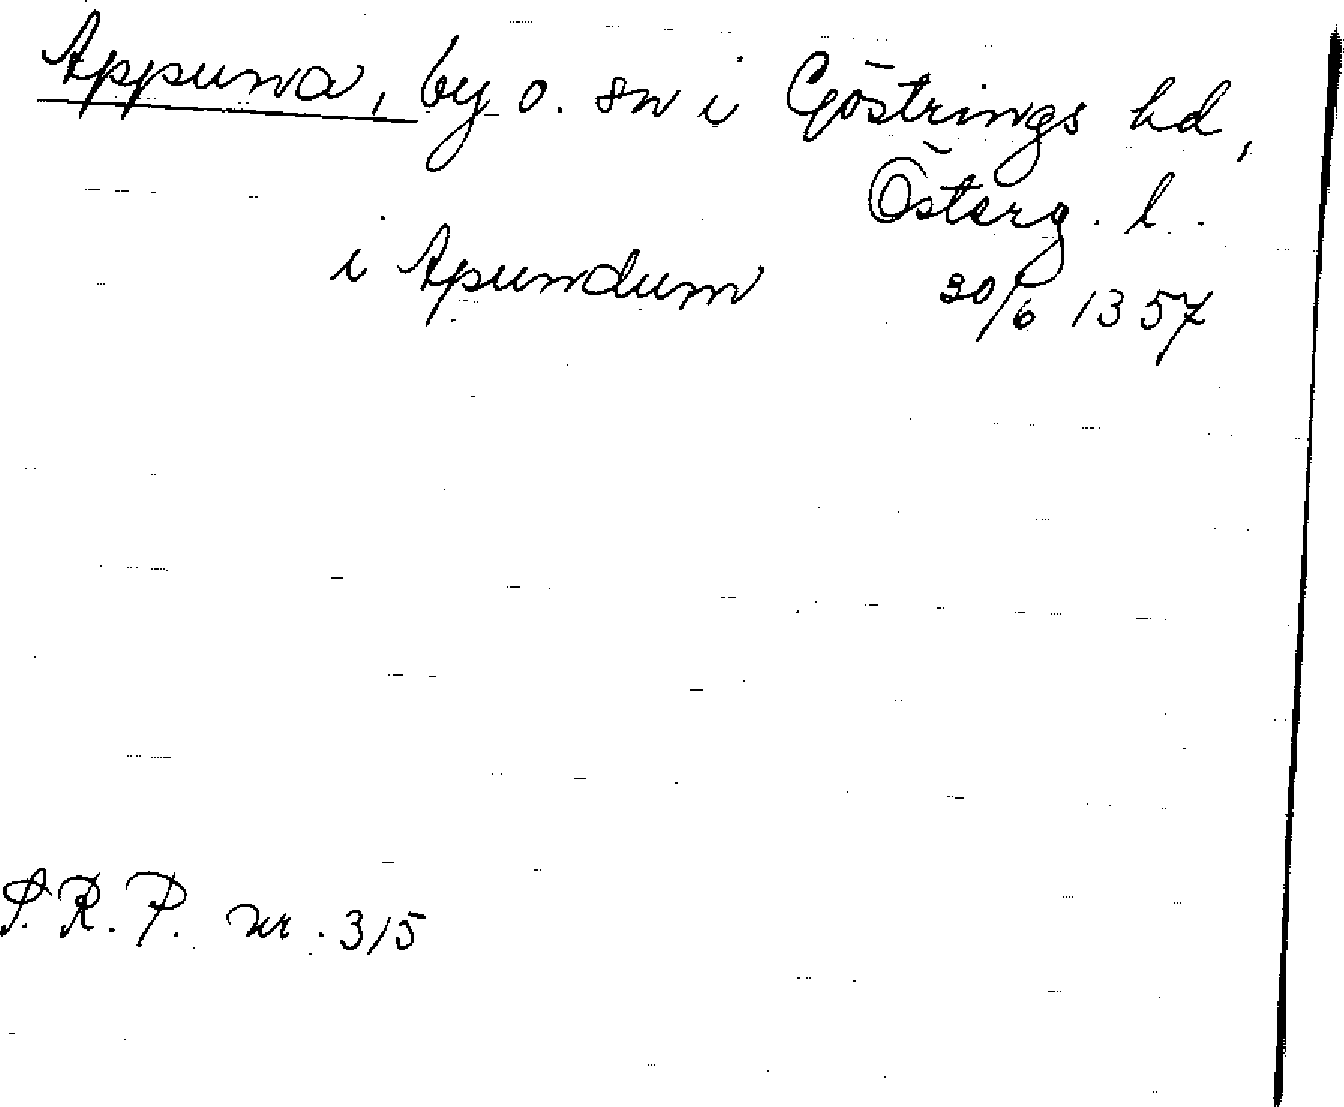 Appuna, by o. sn i Göstrings hd,
Österg. l.
i Apundum 30/6 1357
S.R.P. nr. 315